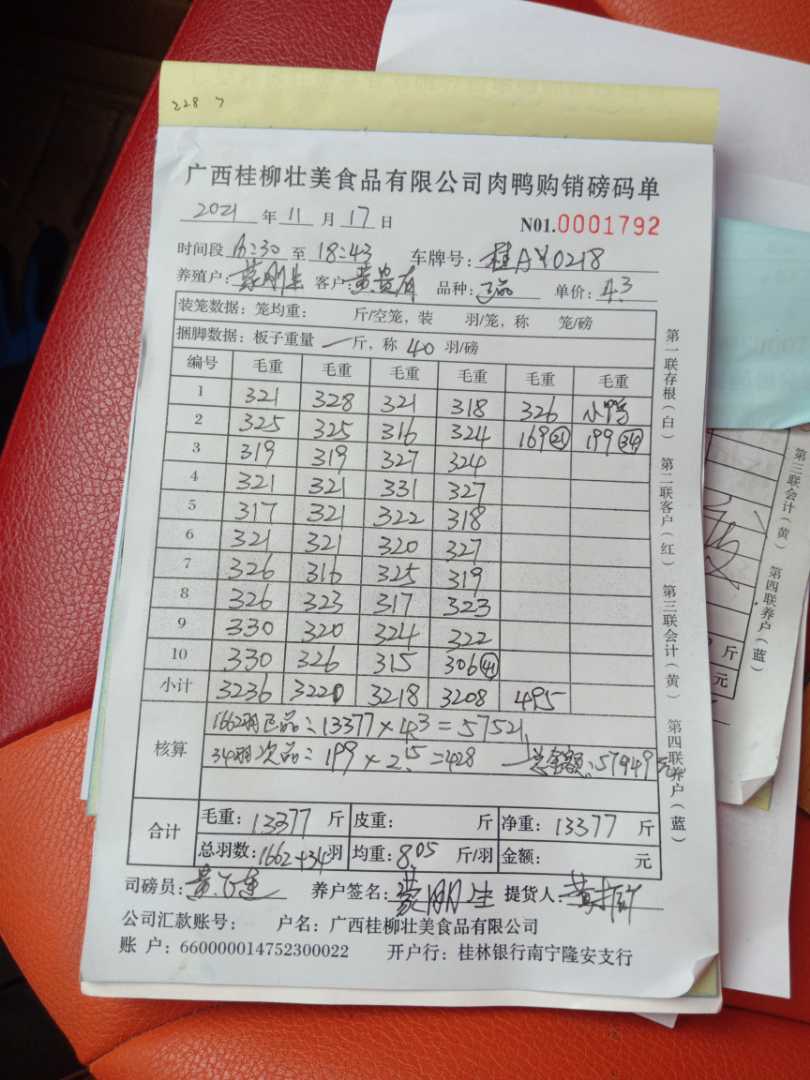 228 7
广西桂柳壮美食品有限公司肉鸭购销磅码单
2021 年 11 月 17 日 N01.0001792
时间段 16:30 至 18:43 车牌号: 桂AY0218
养殖户: 蒙刚生 客户: 黄贵有 品种: 正品 单价: 4.3
装笼数据: 笼均重: 斤/空笼, 装 羽/笼, 称 笼/磅
捆脚数据: 板子重量 一 斤, 称 40 羽/磅
编号 毛重 毛重 毛重 毛重 毛重 毛重
1 321 328 321 318 326 小鸭
2 325 325 316 324 169(21) 199(34)
3 319 319 327 324
4 321 321 331 327
5 317 321 322 318
6 321 321 320 327
7 326 316 325 319
8 326 323 317 323
9 330 320 324 322
10 330 326 315 306(41)
小计 3236 3220 3218 3208 495
核算
1662羽正品: 13377×4.3=57521
34羽次品: 199×2.15=428 总金额: 57949元
合计
毛重: 13377 斤 皮重: 斤 净重: 13377 斤
总羽数: 1662+34羽 均重: 8.05 斤/羽 金额: 元
司磅员: 养户签名: 蒙刚生 提货人:
公司汇款账号: 户名: 广西桂柳壮美食品有限公司
账 户: 660000014752300022 开户行: 桂林银行南宁隆安支行
第一联存根(白) 第二联客户(红) 第三联会计(黄) 第四联养户(蓝)
第三联会计(黄) 第四联养户(蓝)
斤
元